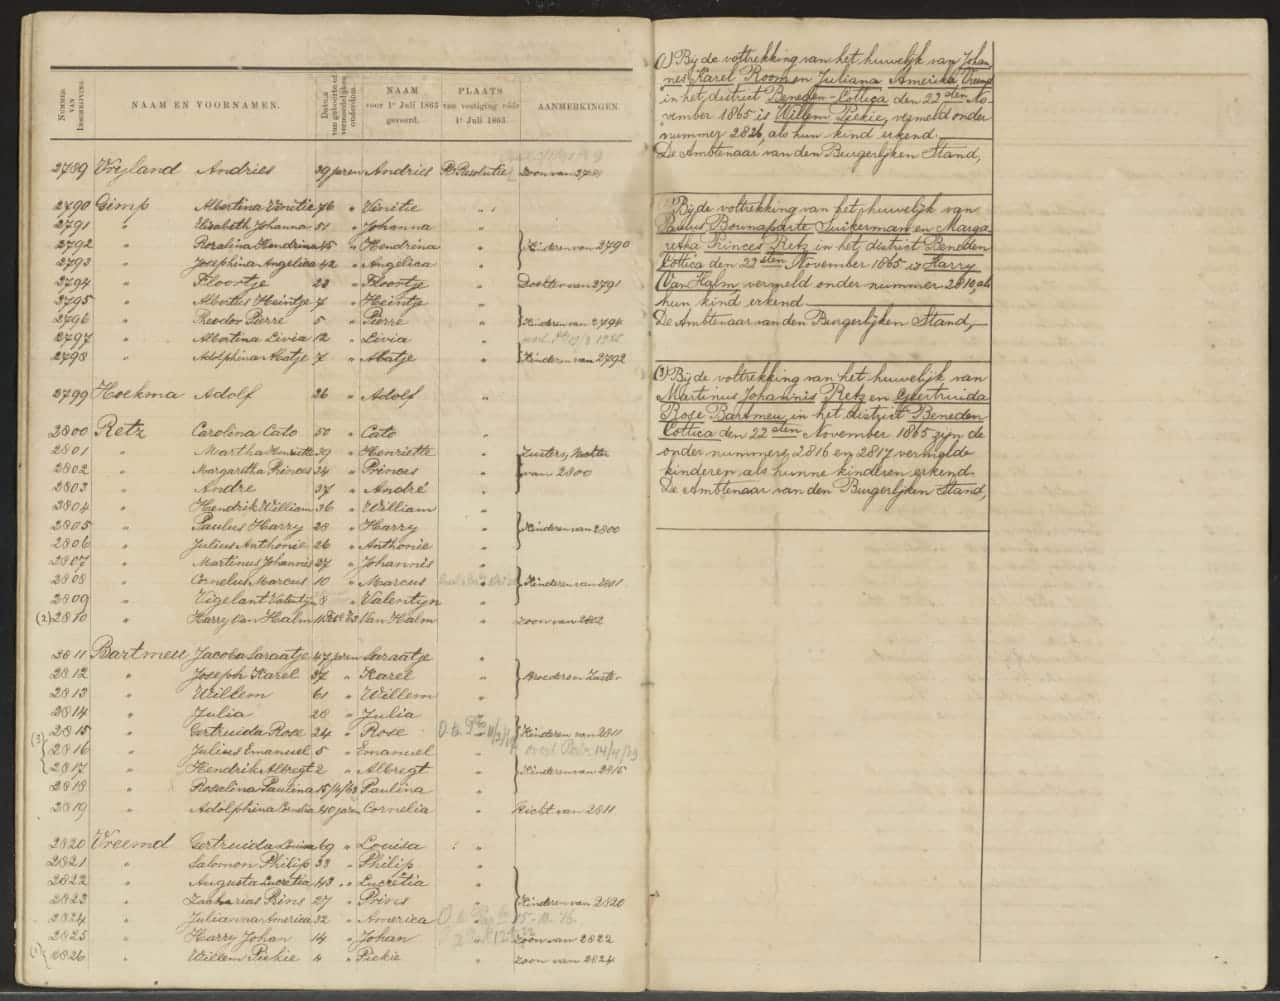 NUMMER VAN INSCHRIJVING
NAAM EN VOORNAMEN.
Datum van geboorte of vermoedelijken ouderdom.
NAAM voor 1e Juli 1863 gevoerd.
PLAATS van vestiging vóór 1e Juli 1863.
AANMERKINGEN.
2789 Vrijland Andries 39 jaren Andries Pl. Resolutie Zoon van 2781
2790 Gimp Albertina Venitie 76 " Venitie "
2791 " Elisabeth Johanna 51 " Johanna "
2792 " Rosalina Hendrina 45 " Hendrina " Kinderen van 2790
2793 " Josephina Angelica 42 " Angelica "
2794 " Floortje 28 " Floortje " Dochter van 2791
2795 " Albertus Heintje 7 " Heintje "
2796 " Theodor Pierre 5 " Pierre " Kinderen van 2794
2797 " Albertina Livia 12 " Livia "
2798 " Adolphina Abatje 7 " Abatje " Kinderen van 2792
2799 Hoekma Adolf 26 " Adolf "
2800 Retz Carolina Cato 50 " Cato "
2801 " Martha Henriette 39 " Henriette " Zusters, Broeder
2802 " Margaretha Princes 34 " Princes " van 2800
2803 " André 37 " André "
2804 " Hendrik William 36 " William "
2805 " Paulus Harry 28 " Harry " Kinderen van 2800
2806 " Julius Anthonie 26 " Anthonie "
2807 " Martinus Johannis 27 " Johannis "
2808 " Cornelus Marcus 10 " Marcus " Kinderen van 2801
2809 " Vigelant Valentyn 8 " Valentyn "
(2) 2810 " Harry Van Halm Van Halm " Zoon van 2802
2811 Bartmeu Jacoba Saraatje 47 jaren Saraatje "
2812 " Joseph Karel 37 " Karel " Broeder en Zuster
2813 " Willem 61 " Willem "
2814 " Julia 28 " Julia "
2815 " Gertruida Rose 24 " Rose Kinderen van 2811
(3) 2816 " Julius Emanuel 5 " Emanuel 14/4/73
2817 " Hendrik Albregt 2 " Albregt " Kinderen van 2815
2818 " Roselina Paulina 15/4/63 Paulina "
2819 " Adolphina Cornelia 40 jaren Cornelia " Nicht van 2811
2820 Vreemd Gertruida Louisa 69 " Louisa "
2821 " Salomon Philip 38 " Philip "
2822 " Augusta Lucretia 43 " Lucretia "
2823 " Zacharias Prins 27 " Prins " Kinderen van 2820
2824 " Julianna America 32 " America
2825 " Harry Johan 14 " Johan Zoon van 2822
(1) 2826 " Willem Piekie 4 " Piekie " Zoon van 2824
(1) Bij de voltrekking van het huwelijk van Johan-
nes Karel Room en Juliana Amerika Vreemd
in het district Beneden-Cottica den 22sten No-
vember 1865 is Willem Piekie, vermeld onder
nummer 2826, als hun kind erkend.
De Ambtenaar van den Burgerlijken Stand,
(2) Bij de voltrekking van het huwelijk van
Paulus Bounaparte Suikerman en Marga-
retha Princes Retz in het district Beneden
Cottica den 22sten November 1865 is Harry
Van Halm vermeld onder nummer 2810, als
hun kind erkend
De Ambtenaar van den Burgerlijken Stand,
(3) Bij de voltrekking van het huwelijk van
Martinus Johannis Retz en Geertruida
Rose Bartmeu in het district Beneden
Cottica den 22sten November 1865 zijn de
onder nummers 2816 en 2817 vermelde
kinderen als hunne kinderen erkend.
De Ambtenaar van den Burgerlijken Stand,